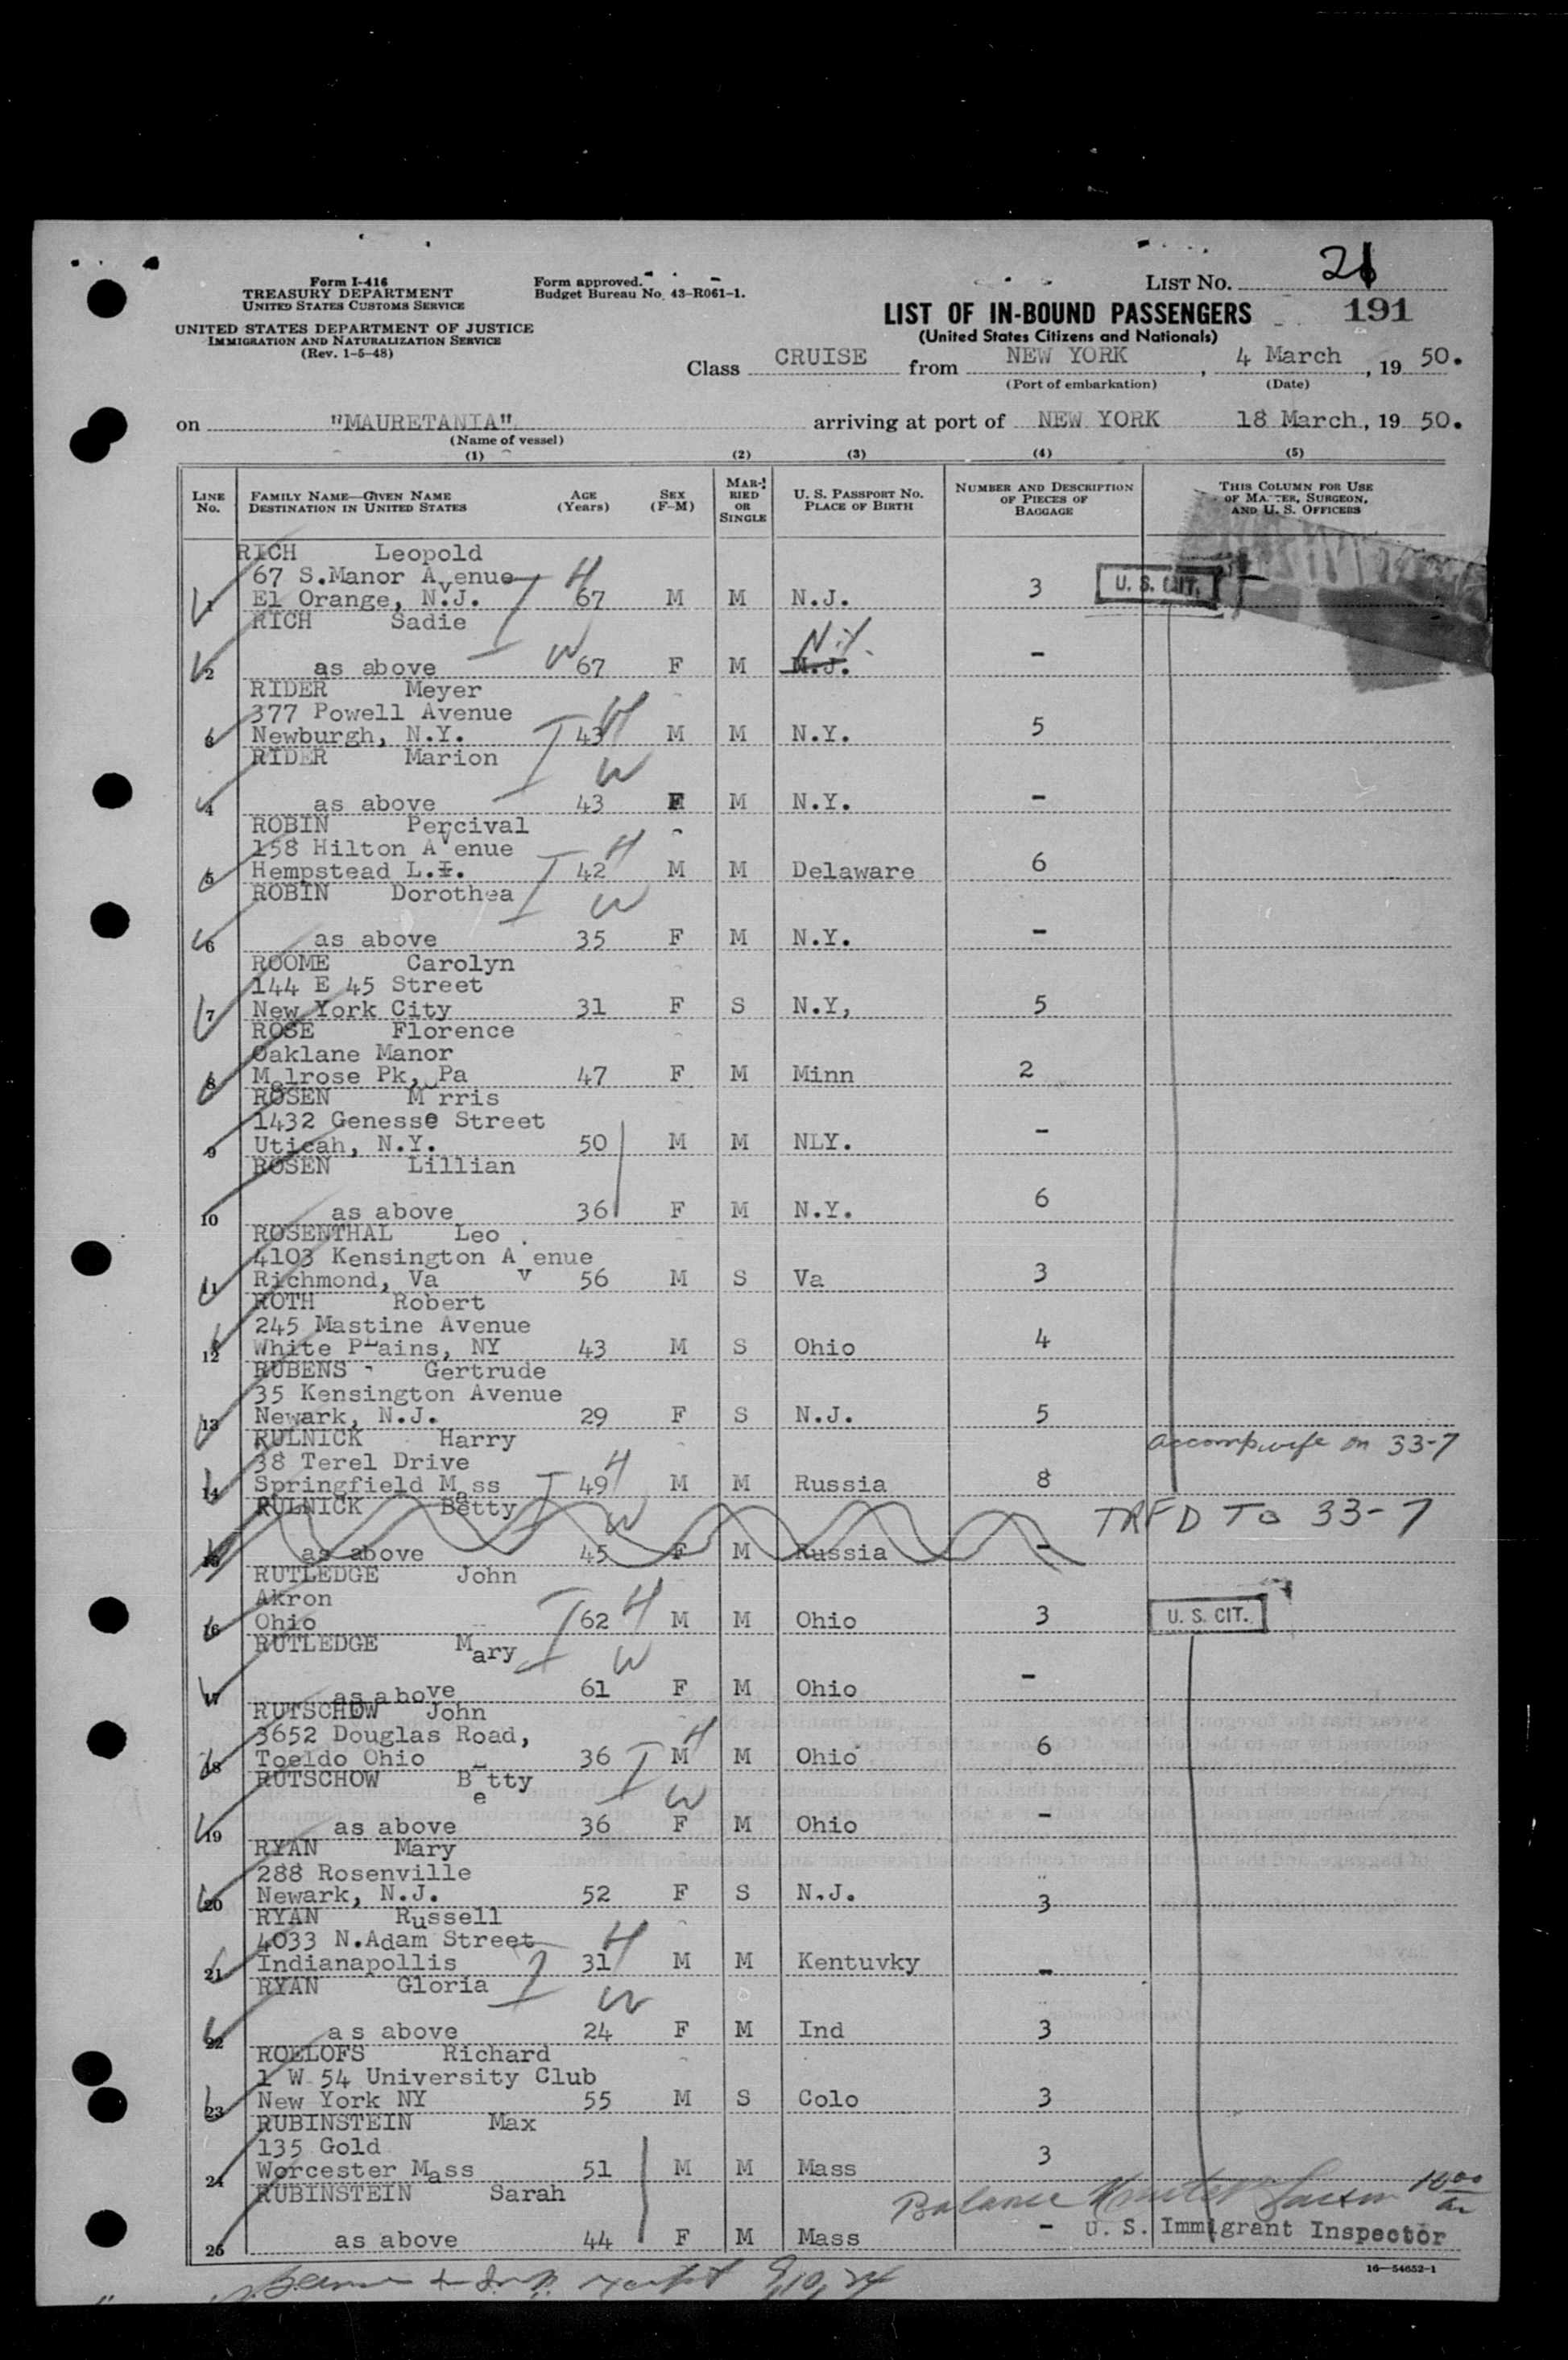 Form I-416
TREASURY DEPARTMENT
UNITED STATES CUSTOMS SERVICE
UNITED STATES DEPARTMENT OF JUSTICE
IMMIGRATION AND NATURALIZATION SERVICE
(Rev. 1-5-48)
Form approved.
Budget Bureau No. 43-R061-1.
LIST NO. 21
191
LIST OF IN-BOUND PASSENGERS
(United States Citizens and Nationals)
Class CRUISE from NEW YORK, 4 March, 19 50.
(Port of embarkation) (Date)
on "MAURETANIA" arriving at port of NEW YORK 18 March, 19 50.
(Name of vessel)
(1) (2) (3) (4) (5)
LINE NO. FAMILY NAME—GIVEN NAME DESTINATION IN UNITED STATES AGE (Years) SEX (F-M) MARRIED OR SINGLE U. S. PASSPORT NO. PLACE OF BIRTH NUMBER AND DESCRIPTION OF PIECES OF BAGGAGE THIS COLUMN FOR USE OF MASTER, SURGEON, AND U. S. OFFICERS
RICH Leopold
67 S.Manor Avenue H
1 El Orange, N.J. 67 M M N.J. 3 U. S. CIT.
RICH Sadie
N.Y.
2 as above W 67 F M N.J. -
RIDER Meyer
377 Powell Avenue H
3 Newburgh, N.Y. 43 M M N.Y. 5
RIDER Marion
W
4 as above 43 F M N.Y. -
ROBIN Percival
158 Hilton Avenue H
5 Hempstead L.I. 42 M M Delaware 6
ROBIN Dorothea
W
6 as above 35 F M N.Y. -
ROOME Carolyn
144 E 45 Street
7 New York City 31 F S N.Y, 5
ROSE Florence
Oaklane Manor
8 Melrose Pk, Pa 47 F M Minn 2
ROSEN M rris
1432 Genesse Street
9 Uticah, N.Y. 50 M M NLY. -
ROSEN Lillian
10 as above 36 F M N.Y. 6
ROSENTHAL Leo
4103 Kensington Avenue
11 Richmond, Va 56 M S Va 3
ROTH Robert
245 Mastine Avenue
12 White Plains, NY 43 M S Ohio 4
RUBENS Gertrude
35 Kensington Avenue
13 Newark, N.J. 29 F S N.J. 5
RULNICK Harry accomp wife on 33-7
38 Terel Drive H
14 Springfield Mass 49 M M Russia 8
RULNICK Betty W TRFD TO 33-7
15 as above 45 F M Russia -
RUTLEDGE John
Akron H
16 Ohio 62 M M Ohio 3 U. S. CIT.
RUTLEDGE Mary
W
17 as above 61 F M Ohio -
RUTSCHOW John
3652 Douglas Road, H
18 Toeldo Ohio 36 M M Ohio 6
RUTSCHOW Betty
W
19 as above 36 F M Ohio -
RYAN Mary
288 Rosenville
20 Newark, N.J. 52 F S N.J. 3
RYAN Russell
4033 N.Adam Street H
21 Indianapollis 31 M M Kentuvky -
RYAN Gloria
W
22 as above 24 F M Ind 3
ROELOFS Richard
1 W 54 University Club
23 New York NY 55 M S Colo 3
RUBINSTEIN Max
135 Gold
24 Worcester Mass 51 M M Mass 3
RUBINSTEIN Sarah
Balance
25 as above 44 F M Mass - U. S. Immigrant Inspector
16—54652-1
9, 10, 24